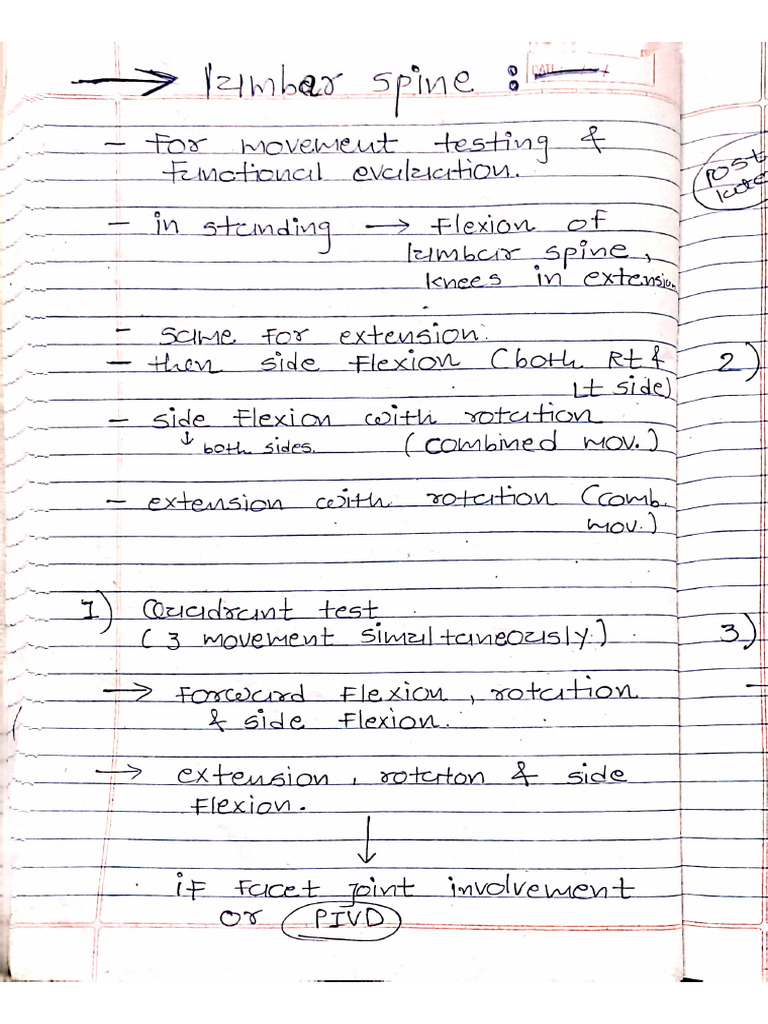 → Lumbar spine :-
- For movement testing &
functional evaluation.
- in standing → flexion of
lumbar spine,
knees in extension
- same for extension.
- then side flexion (both Rt &
Lt side)
- side flexion with rotation
↓ both sides. (combined mov.)
- extension with rotation (comb.
mov.)
1) Quadrant test
(3 movement simultaneously.)
→ forward flexion, rotation
& side flexion.
→ extension, rotaton & side
flexion.
↓
if facet joint involvement
or PIVD
post
2)
3)
-